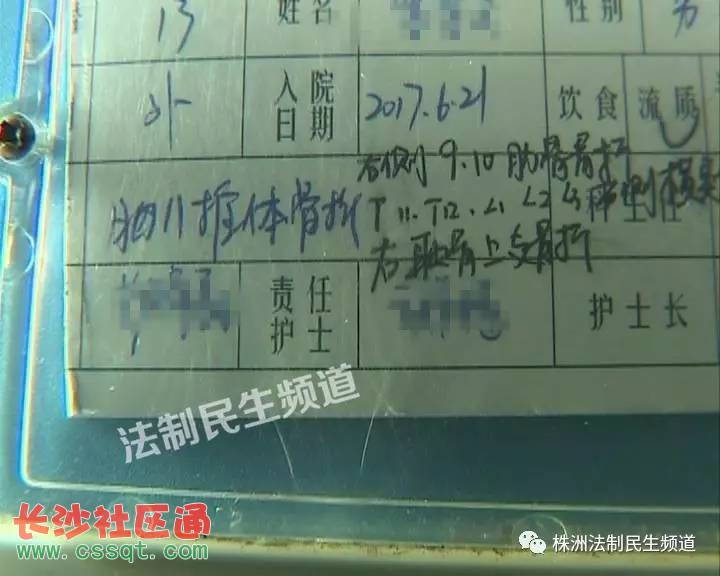 13 姓名 性别 男
外 入院日期 2017.6.21 饮食 流质
右侧 9.10 肋骨骨折
胸11椎体骨折 T11.T12.L1 L2 L3 横突
右耻骨上支骨折
责任护士 护士长
法制民生频道
长沙社区通
www.cssqt.com
株洲法制民生频道